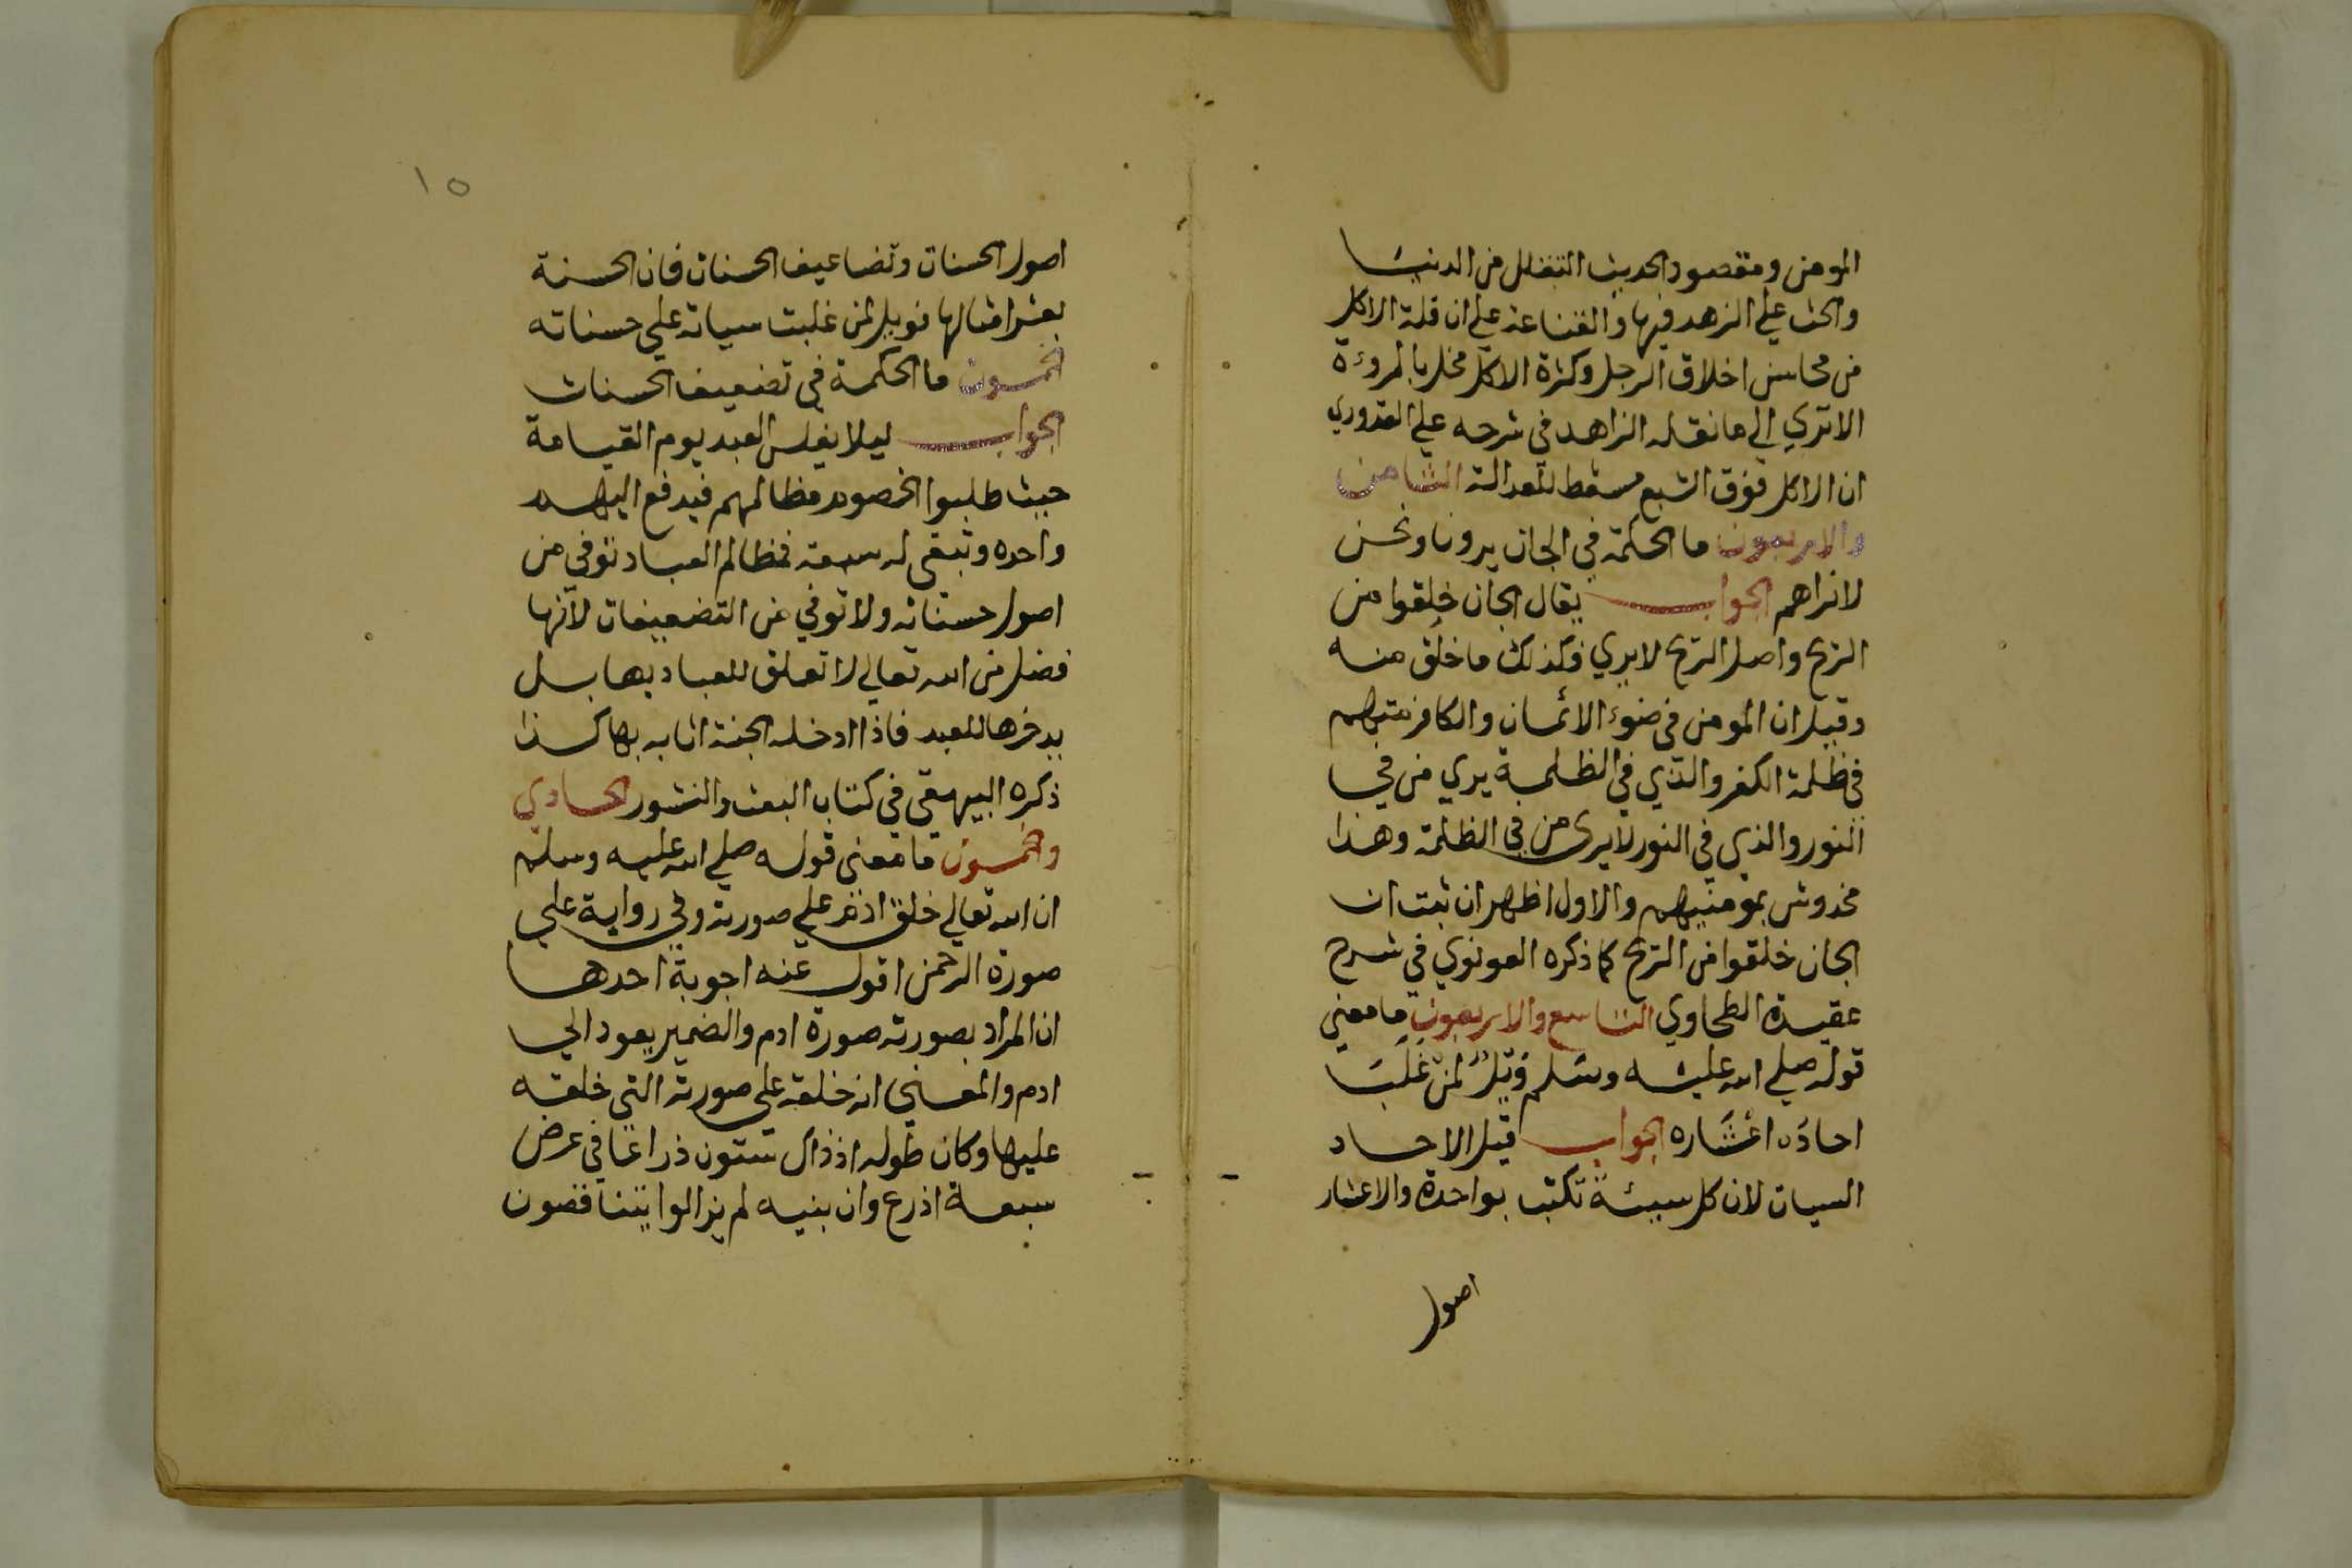 المومن ومقصود الحديث التقلل من الدنيا
والحث علي الزهد فيها والقناعة علي ان قلة الاكل
من محاسن اخلاق الرجل وكثرة الاكل مخل بالمروءة
الا تري الي ما نقله الزاهد في شرحه علي القدوري
ان الاكل فوق الشبع مسقط للعدالة الثامن
والاربعون ما الحكمة في الجان يرونا ونحن
لا نراهم الجواب يقال الجان خلقوا من
الريح واصل الريح لا يري فكذلك ما خلق منه
وقيل ان المومن في ضوء الائمان والكافر منهم
في ظلمة الكفر والذي في الظلمة يري من في
النور والذي في النور لا يرى من في الظلمة وهذا
مخدوش بمومنيهم والاول اظهر ان ثبت ان
الجان خلقوا من الريح كما ذكره القونوي في شرح
عقيدة الطحاوي التاسع والاربعون ما معني
قوله صلي الله عليه وسلم وَيْلٌ لمن غَلَبَت
احادُه اعْشَاره الجواب قيل الاحاد
السيات لان كل سيئة تكتب بواحدة والاعشار
اصول
١٥
اصول الحسنات وتضاعيف الحسنات فان الحسنة
بعشر امثالها فويل لمن غلبت سياته علي حسناته
الخمسون ما الحكمة في تضعيف الحسنات
الجواب ليلا يفلس العبد يوم القيامة
حيث طلبوا الخصوم مظالمهم فيدفع اليهم
واحده وتبقى له سبعة فمظالم العباد توفي من
اصول حسناته ولا توفي من التضعيفات لانها
فضل من الله تعالي لا تعلق للعباد بها بل
يدخرها للعبد فاذا ادخله الجنة اثابه بها كذا
ذكره البيهقي في كتاب البعث والنشور الحادي
والخمسون ما معنى قوله صلي الله عليه وسلم
ان الله تعالي خلق ادم علي صورته وفي رواية علي
صورة الرحمن اقول عنه اجوبة احدها
ان المراد بصورته صورة ادم والضمير يعود الي
ادم والمعني انه خلقه علي صورته التي خلقه
عليها وكان طوله اذ ذاك ستون ذراعا في عرض
سبعة اذرع وان بنيه لم يزالوا يتناقصون